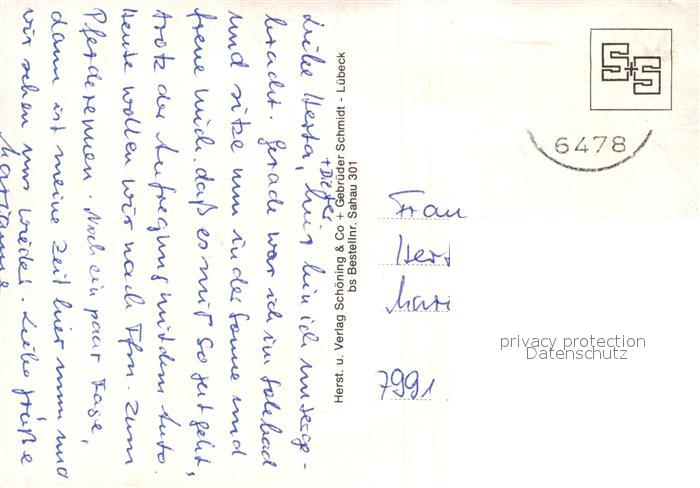 Liebe Herta, hier bin ich unterge-
bracht. Gerade war ich im Solebad
und sitze nun in der Sonne und
freue mich, daß es mir so gut geht,
trotz der Aufregung mit dem Auto.
Heute wollen wir nach Ffm. zum
Pferderennen. Noch ein paar Tage,
dann ist meine Zeit hier rum und
wir sehen uns wieder. Liebe Grüße
Marianne
+ Dieter
Herst. u. Verlag Schöning & Co + Gebrüder Schmidt - Lübeck
bs Bestellnr. Sahau 301
S+S
6478
Frau
Hert
Mari
7991
privacy protection
Datenschutz